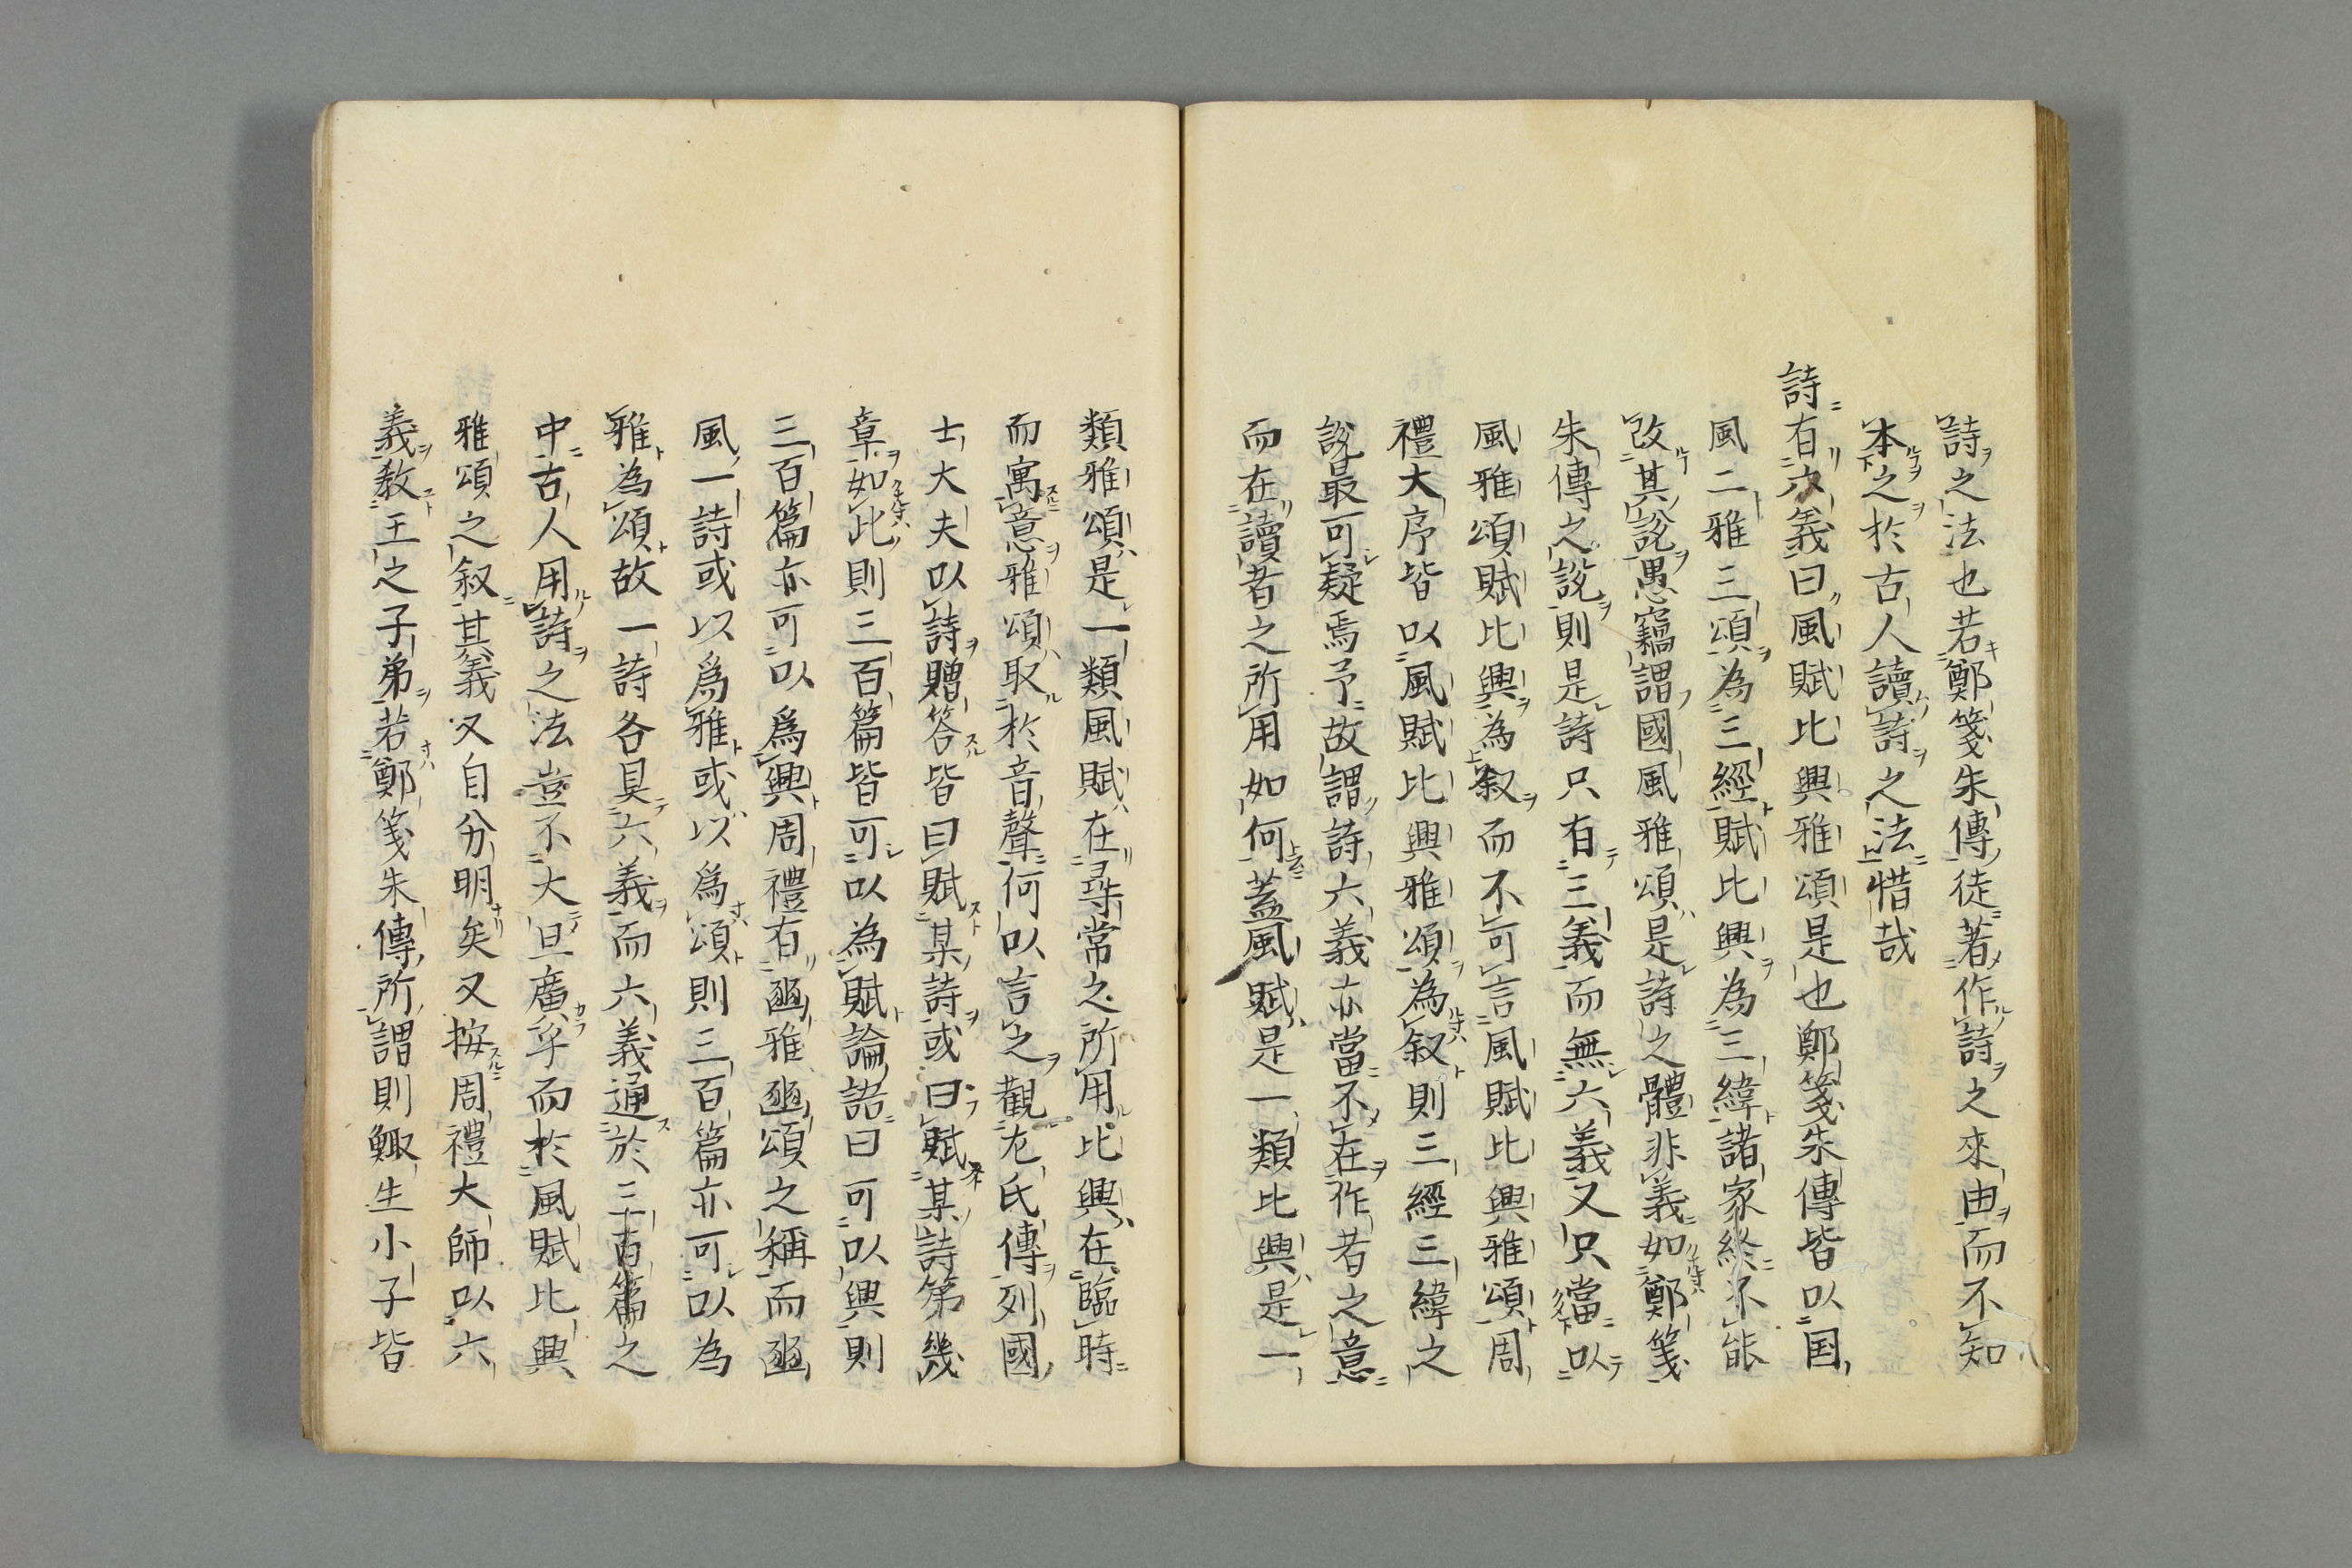 詩之法也若鄭箋朱傳徒著作詩之來由而不知
本之於古人讀詩之法惜哉
詩有六義曰風賦比興雅頌是也鄭箋朱傳皆以国
風二雅三頌為三經賦比興為三緯諸家終不能
改其說愚竊謂國風雅頌是詩之體非義如鄭箋
朱傳之說則是詩只有三義而無六義又只當以
風雅頌賦比興為叙而不可言風賦比興雅頌周
禮大序皆以風賦比興雅頌為叙則三經三緯之
說最可疑焉予故謂詩六義亦當不在作者之意
而在讀者之所用如何蓋風賦是一類比興是一
類雅頌是一類風賦在尋常之所用比興在臨時
而寓意雅頌取於音聲何以言之觀左氏傳列國
士大夫以詩贈答皆曰賦某詩或曰賦某詩第幾
章如比則三百篇皆可以為賦論語曰可以興則
三百篇亦可以爲興周禮有豳雅豳頌之稱而豳
風一詩或以爲雅或以爲頌則三百篇亦可以為
雅為頌故一詩各具六義而六義通於三百篇之
中古人用詩之法豈不大且廣乎而於風賦比興
雅頌之叙其義又自分明矣又按周禮大師以六
義教王之子弟若鄭箋朱傳所謂則鯫生小子皆